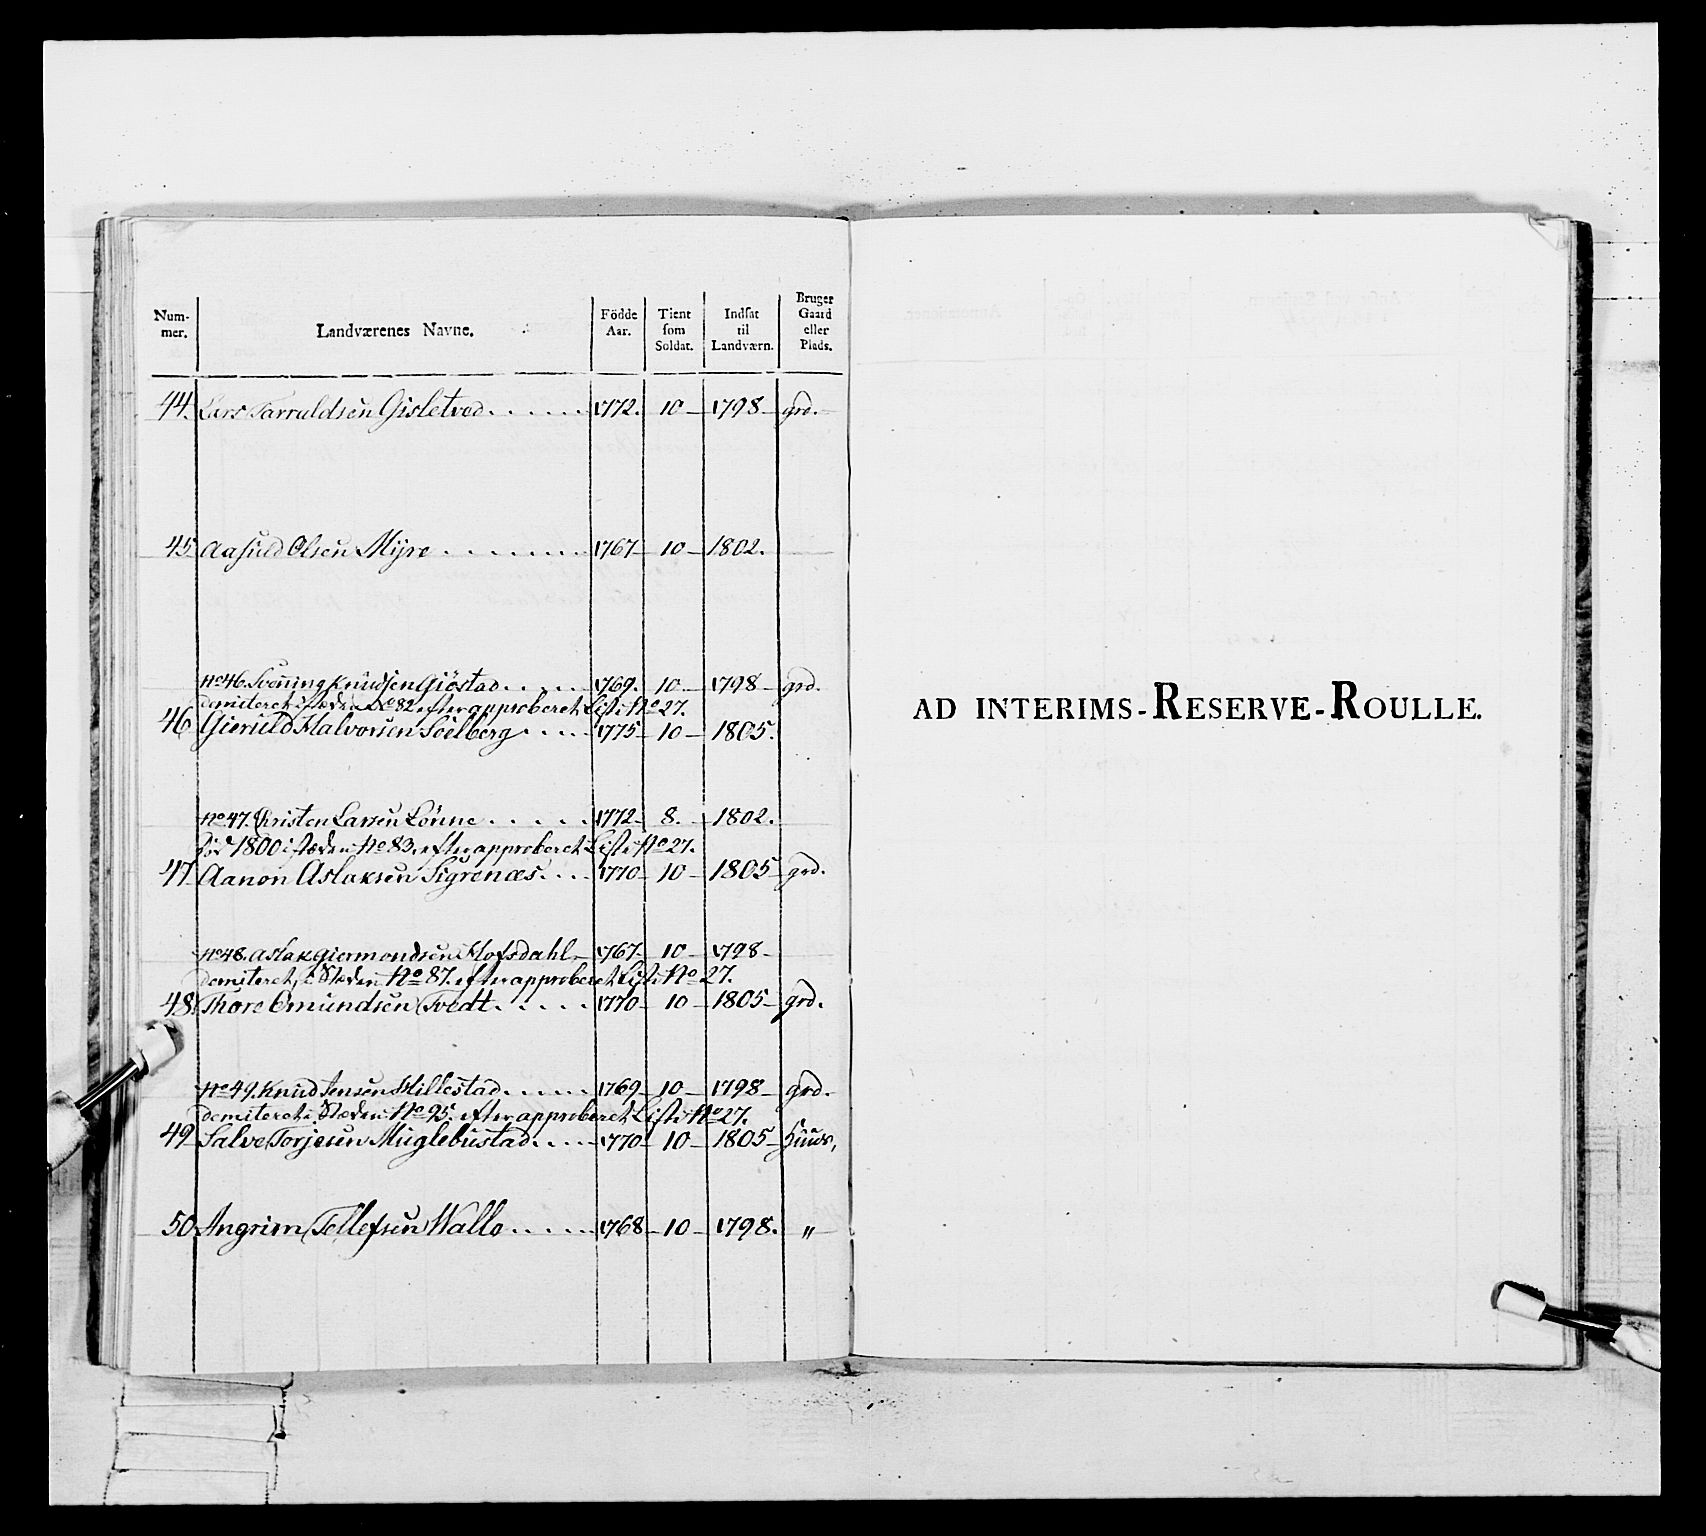 Num-
mer.
Landværenes Navne.
Födde
Aar.
Tient
som
Soldat.
Indsat
til
Landværn.
Bruger
Gaard
eller
Plads.
44. Lars Tarraldsen Gisletved . . . . . . 1772. 10 – 1798 – grd.
45 Aasuld Olsen Mijre . . . . . . . . 1767 – 10 – 1802.
No 46. Svenning Knudsen Giöstad . . . . . 1769. 10 – 1798 – grd.
demiteret i steden No 82 efter approberet Liste No 27.
46 Gieruld Halvorsen Söelberg . . . . 1775 – 10 – 1805.
No 47. Christen Larsen Lönne . . . . . 1772. 8. – 1802.
död 1800 i steden No 83. efter approberet Liste No 27.
47 Aanon Aslaksen Sigrenæs . . . 1770 – 10 – 1805 – grd.
No 48. Aslak Giermondsen Hofsdahl – 1767. 10 – 1798 –
demiteret, i Steden No 87. efter approberet Liste No 27.
48. Thore Omundsen Tvedt . . . . . 1770 – 10 – 1805 – grd.
No 49. Knud Jensen Hillestad . . . . . 1769 – 10 – 1798 – grd.
demiteret i Steden No 95. efter approberet Liste No 27.
49 Salve Torjesen Muglebustad . . . . 1770 – 10 – 1805 – Huus,
50 Angrim Tellefsen Walle . . . . . 1768 – 10 – 1798. "
AD INTERIMS-RESERVE-ROULLE.